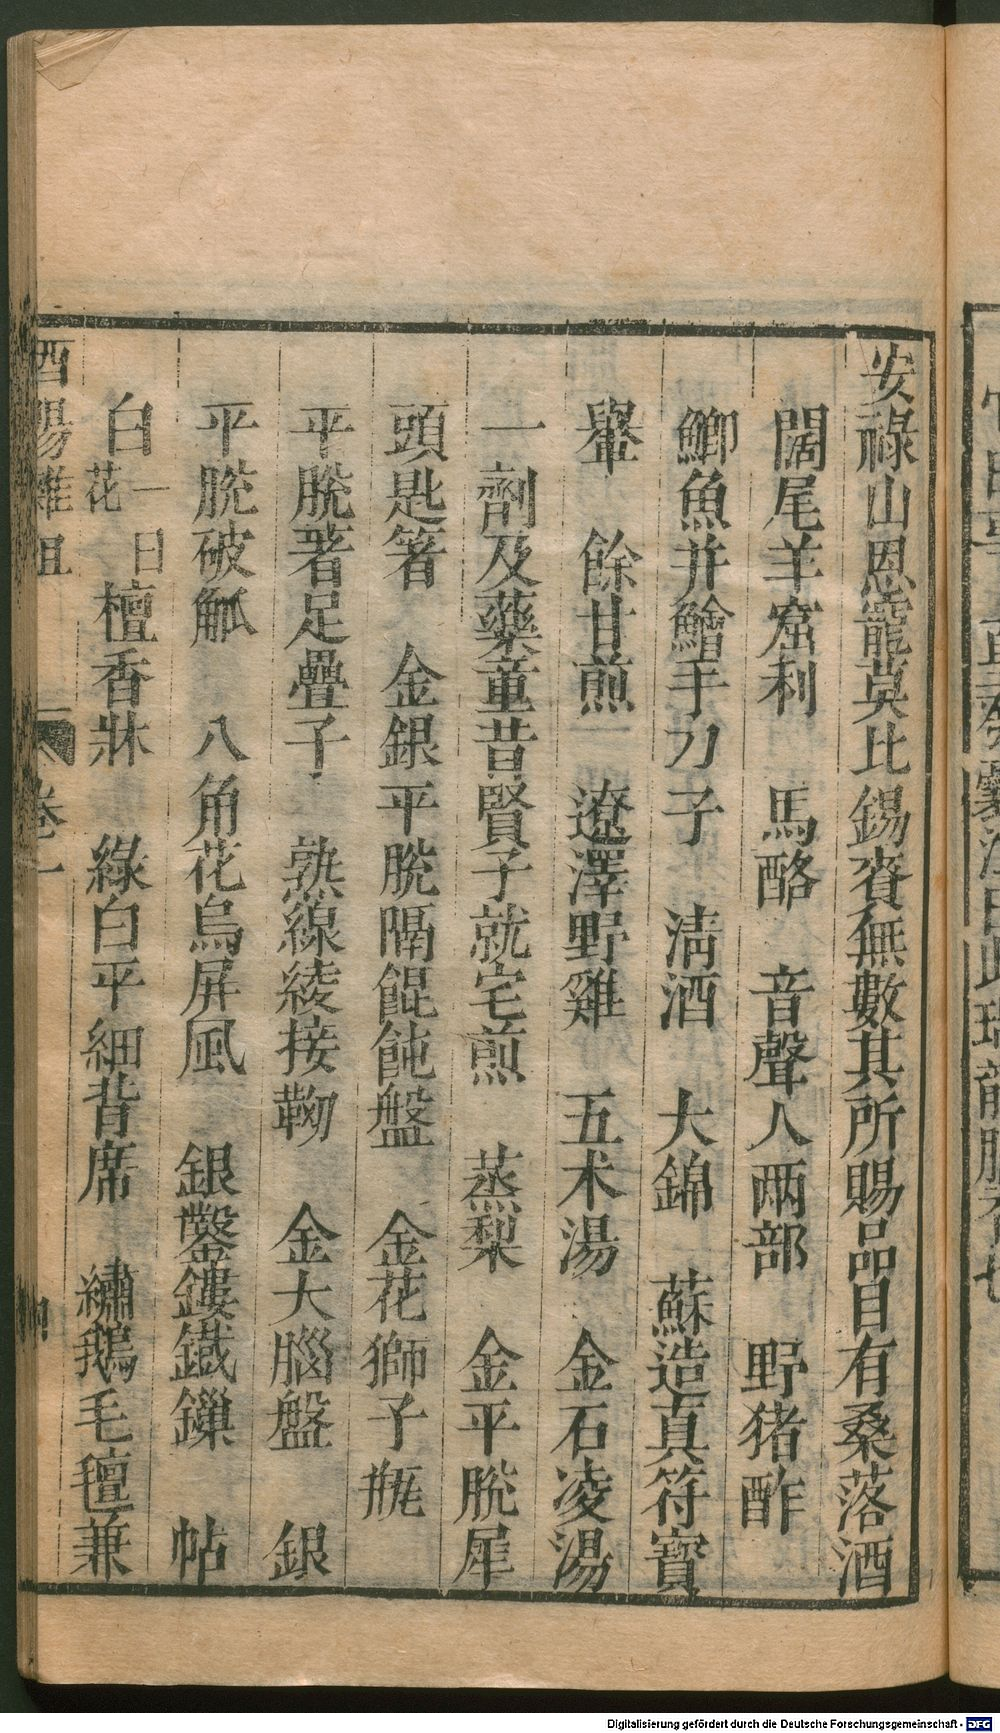 安祿山恩寵莫比錫賚無數其所賜品目有桑落酒
闊尾羊窟利　馬酪　音聲人兩部　野猪酢
鯽魚并鱠手刀子　淸酒　大錦　蘇造真符寳
轝　餘甘煎　遼澤野雞　五术湯　金石凌湯
一劑及藥童昔賢子就宅煎　蒸梨　金平脫犀
頭匙箸　金銀平脫隔餛飩盤　金花獅子瓶
平脫著足疊子　熟線綾接靿　金大腦盤　銀
平脫破觚　八角花烏屏風　銀鑿鏤鐵鏁　帖
白一日花檀香牀　綠白平細背席　繡鵝毛氊兼
酉陽雜俎　卷一　四
Digitalisierung gefördert durch die Deutsche Forschungsgemeinschaft - DFG